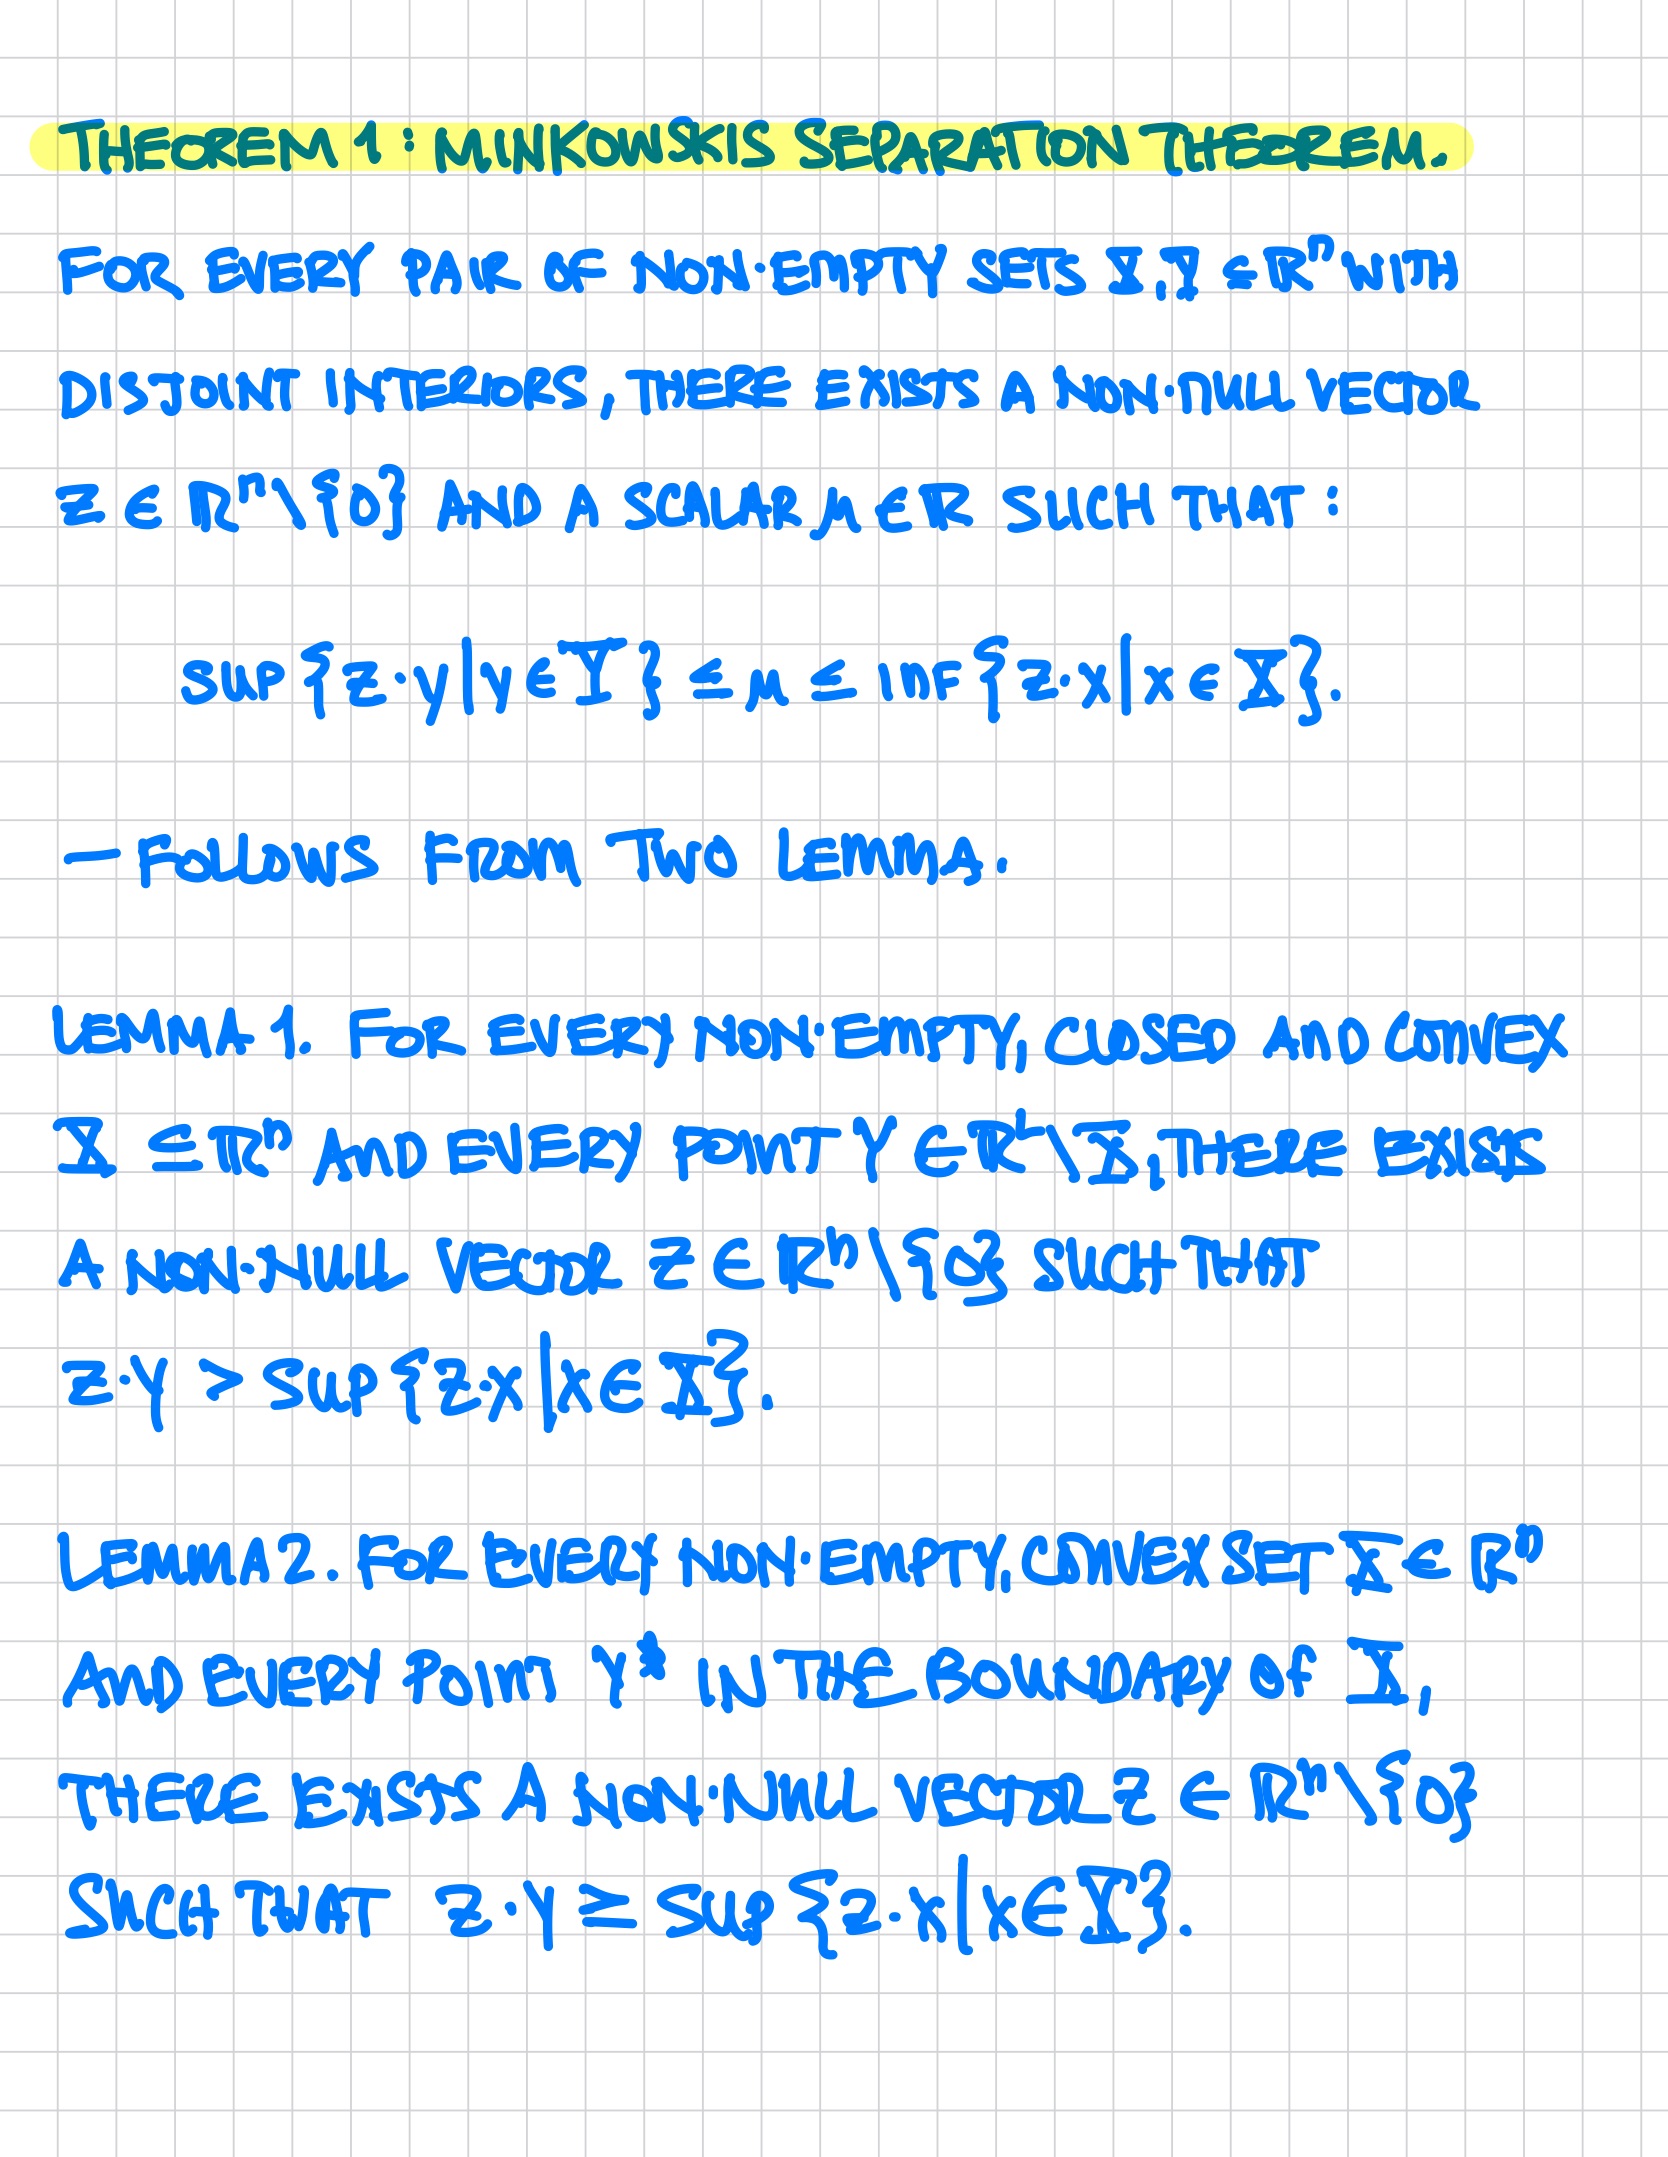 THEOREM 1: MINKOWSKIS SEPARATION THEOREM.
FOR EVERY PAIR OF NON-EMPTY SETS X, Y ⊆ ℝⁿ WITH
DISJOINT INTERIORS, THERE EXISTS A NON-NULL VECTOR
Z ∈ ℝⁿ\{0} AND A SCALAR μ ∈ ℝ SUCH THAT:
SUP{Z·y|y∈Y} ≤ μ ≤ INF{Z·x|x∈X}.
— FOLLOWS FROM TWO LEMMA.
LEMMA 1. FOR EVERY NON-EMPTY, CLOSED AND CONVEX
X ⊆ ℝⁿ AND EVERY POINT Y ∈ ℝᴸ\X, THERE EXISTS
A NON-NULL VECTOR Z ∈ ℝⁿ\{0} SUCH THAT
Z·Y > SUP{Z·X|X∈X}.
LEMMA 2. FOR EVERY NON-EMPTY, CONVEX SET X ∈ ℝⁿ
AND EVERY POINT Y* IN THE BOUNDARY OF X,
THERE EXISTS A NON-NULL VECTOR Z ∈ ℝⁿ\{0}
SUCH THAT Z·Y ≥ SUP{Z·X|X∈X}.